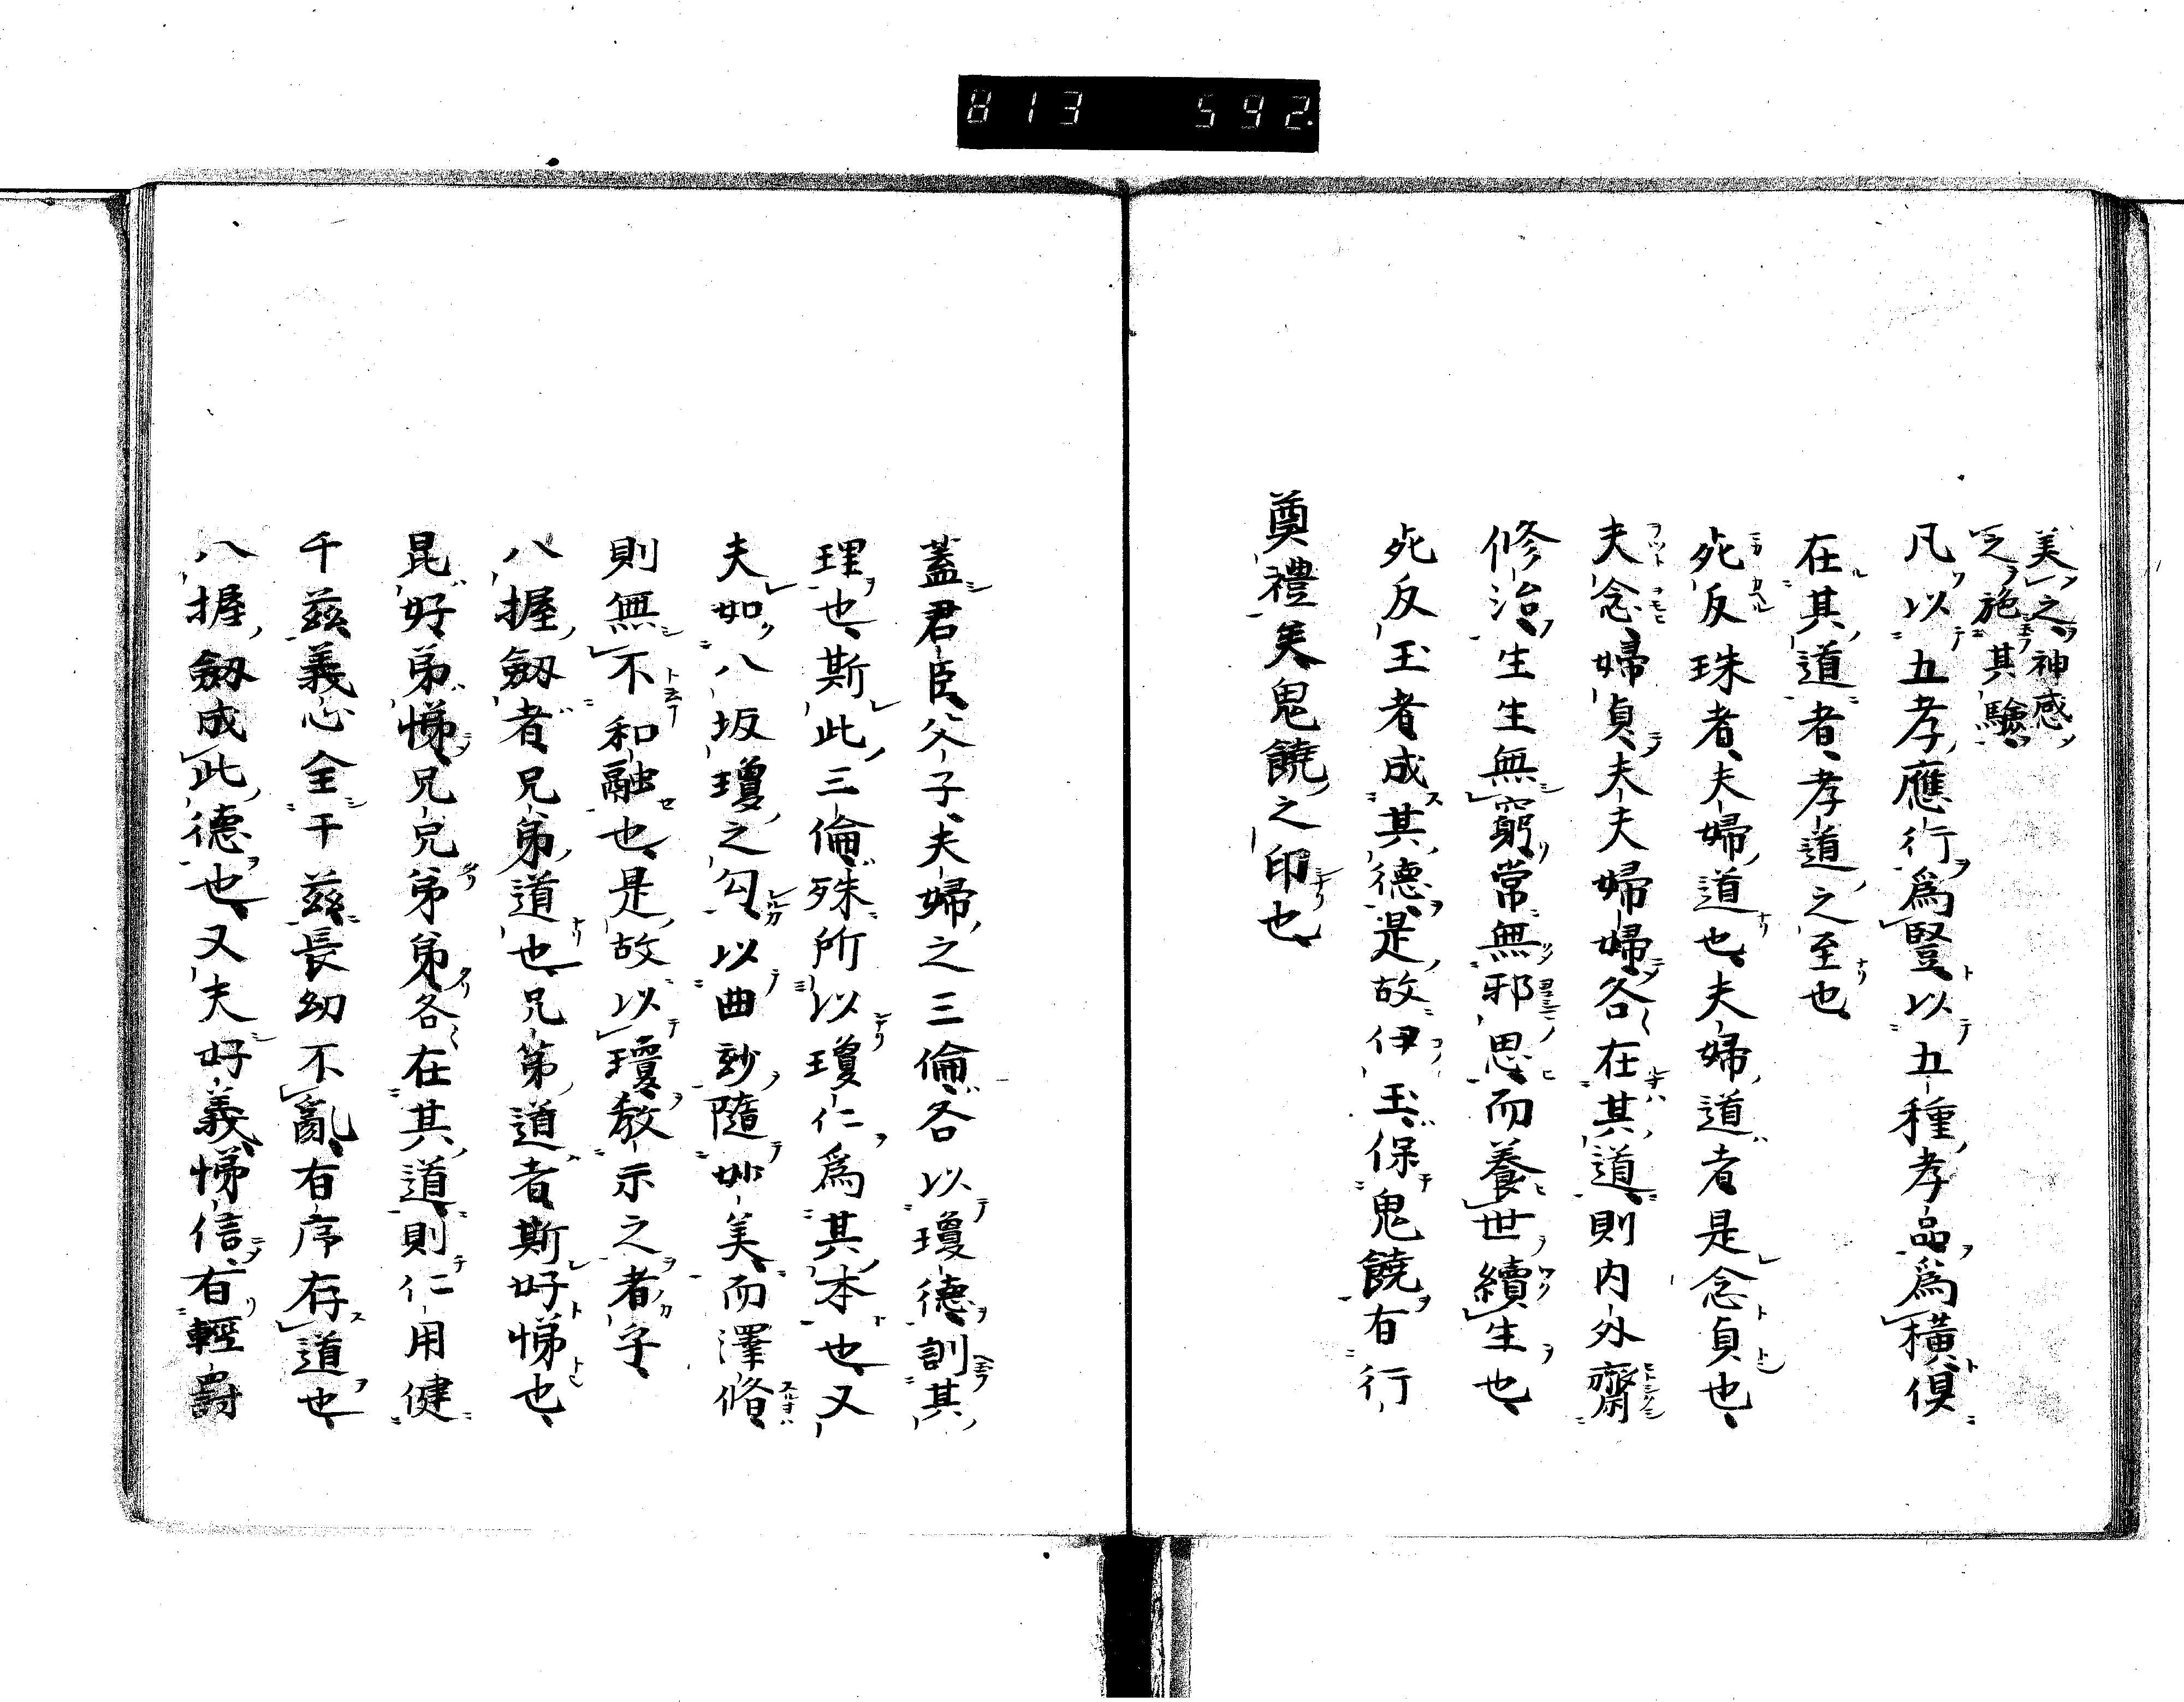 813 592.
美之神感
之施其驗
凡以五孝應行爲豎以五種孝品爲横倶
在其道者孝道之至也
死反珠者夫婦道也夫婦道者是念貞也
夫念婦貞夫夫婦婦各在其道則内外齋
修治生生無窮常無邪思而養世續生也
死反玉者成其德是故伊玉保鬼饒有行
奠禮矣鬼饒之印也
蓋君臣父子夫婦之三倫各以瓊德訓其
理也斯此三倫殊所以瓊仁爲其本也又
夫如八坂瓊之勾以曲玅隨妙美而澤脩
則無不和融也是故以瓊教示之者字
八握劔者兄弟道也兄弟道者斯好悌也
昆好弟悌兄兄弟弟各在其道則仁用健
干茲義心全干茲長幼不亂有序存道也
八握劔成此德也又夫好義悌信有輕爵